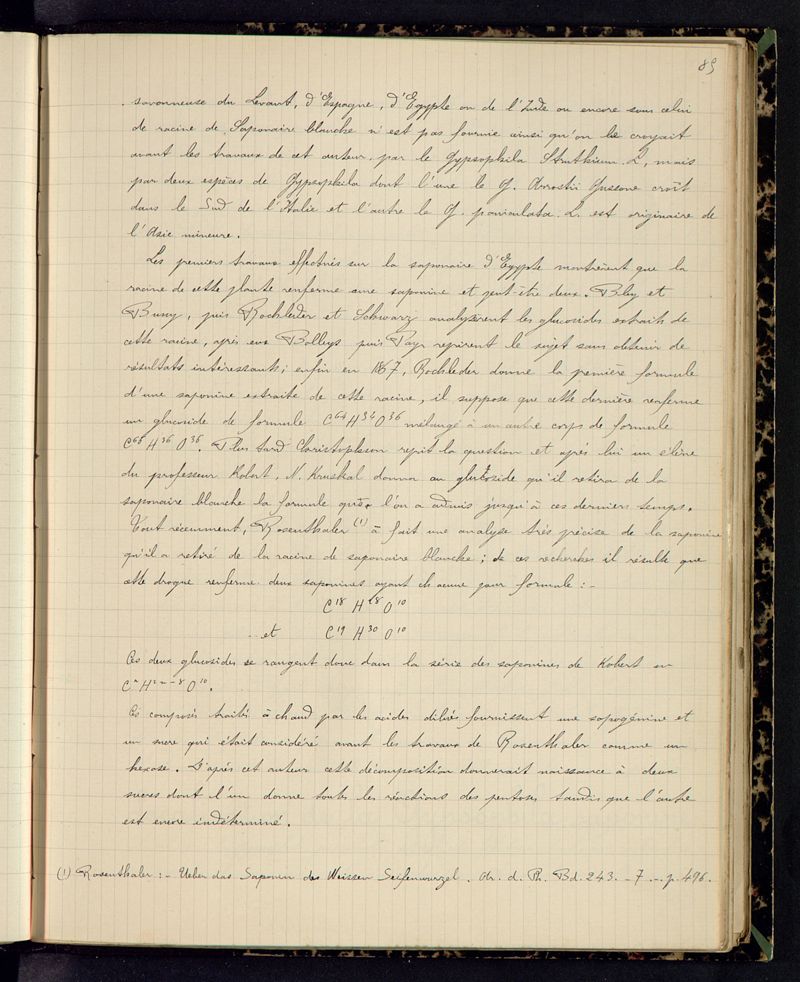 85
savonneuse du Levant, d'Espagne, d'Egypte ou de l'Inde ou encore sous celui
de racine de Saponaire blanche n'est pas fournie ainsi qu'on le croyait
avant les travaux de cet auteur, par le Gypsophila Struthium. L, mais
par deux espèces de Gypsophila dont l'une le G. Arrostii Gussone croît
dans le Sud de l'Italie et l'autre le G. paniculata. L. est originaire de
l'Asie mineure.
Les premiers travaux effectués sur la saponaire d'Egypte montrèrent que la
racine de cette plante renferme une saponine et peut-être deux. Bley et
Bussy, puis Rochleder et Schwarz analysèrent les glucosides extraits de
cette racine, après eux Bolleys puis Payr reprirent le sujet sans obtenir de
résultats intéressants; enfin en 1867, Rochleder donne la première formule
d'une saponine extraite de cette racine, il suppose que cette dernière renferme
un glucoside de formule C⁶⁴H⁵⁴O³⁶ mélangé à un autre corps de formule
H³⁶O³⁶. Plus tard Christophson reprit la question et après lui un élève
du professeur Kobert, N. Kruskal donna au glucoside qu'il retira de la
saponaire blanche la formule que l'on a admis jusqu'à ces derniers temps.
Tout récemment, Rosenthaler (1) à fait une analyse très précise de la saponine
qu'il a retiré de la racine de saponaire blanche; de ces recherches il résulte que
cette drogue renferme deux saponines ayant chacune pour formule :-
C¹⁸ H²⁸ O¹⁰
et C¹⁹ H³⁰ O¹⁰
Ces deux glucosides se rangent donc dans la série des saponines de Kobert en
CⁿH²ⁿ⁻⁸O¹⁰.
Ces composés traités à chaud par les acides dilués fournissent une sapogénine et
un sucre qui était considéré avant les travaux de Rosenthaler comme un
hexose. D'après cet auteur cette décomposition donnerait naissance à deux
sucres dont l'un donne toutes les réactions des pentoses tandis que l'autre
est encore indéterminé.
(1) Rosenthaler :- Ueber das Saponin der Weissen Seifenwurzel. Ar. d. Ph. Bd. 243. - 7 -. p. 496.